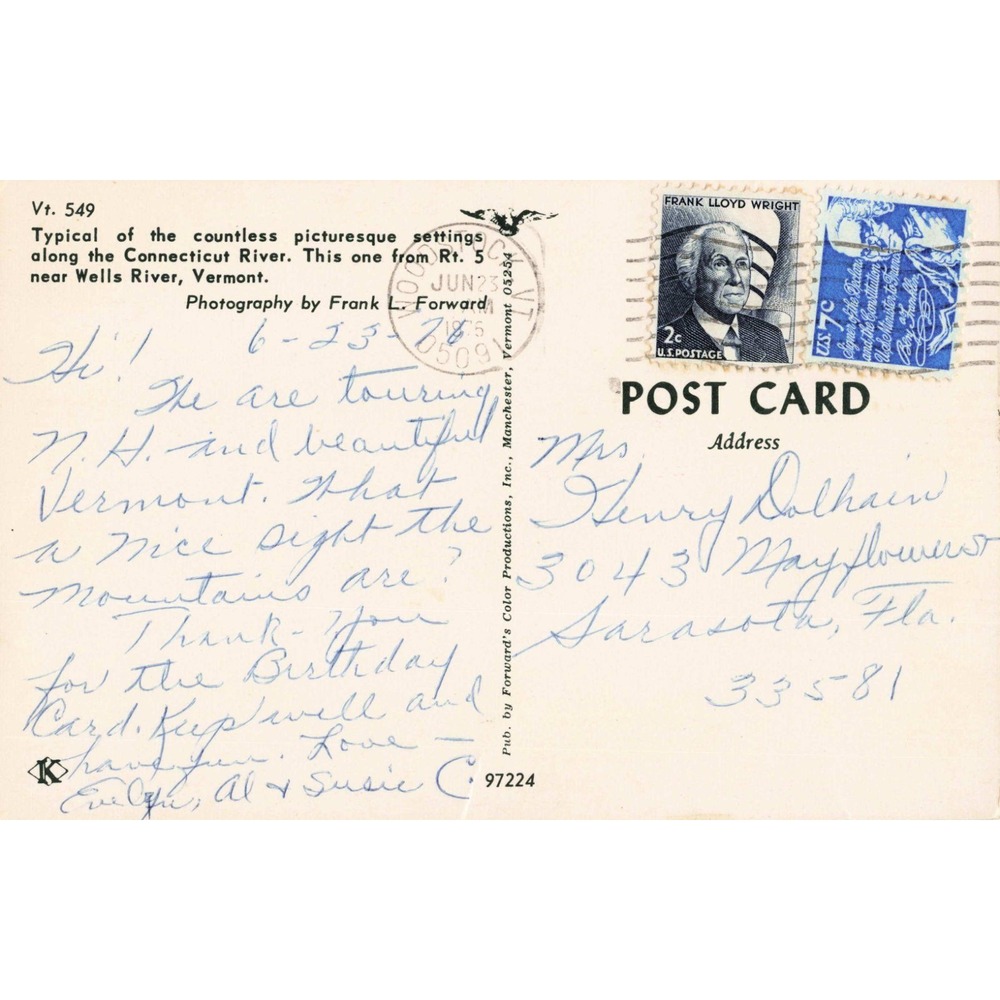 Vt. 549
Typical of the countless picturesque settings
along the Connecticut River. This one from Rt. 5
near Wells River, Vermont.
Photography by Frank L. Forward
WOODSTOCK VT
JUN 23
AM
1976
05091
6-23-76
Hi!
We are touring
N. H. and beautiful
Vermont. What
a nice sight the
mountains are?
Thank-You
for the Birthday
Card. Keep well and
have fun. Love —
Evelyn, Al & Susie C.
K
97224
Pub. by Forward's Color Productions, Inc., Manchester, Vermont 05254
FRANK LLOYD WRIGHT
2c
U.S. POSTAGE
U.S. 7c
Signer of the Declaration
and the Constitution
U.S. Minister to France
Ben Franklin
POST CARD
Address
Mrs.
Henry Dolhain
3043 Mayflower st
Sarasota, Fla.
33581